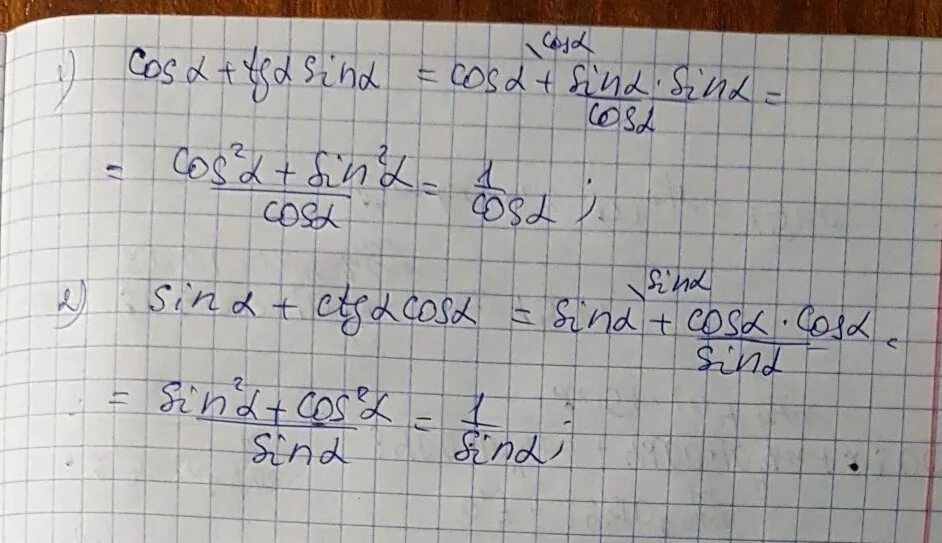 cosα
1) cosα + tgα sinα = cosα + sinα · sinα / cosα =
= cos²α + sin²α / cosα = 1 / cosα ;
sinα
2) sinα + ctgα cosα = sinα + cosα · cosα / sinα =
= sin²α + cos²α / sinα = 1 / sinα ;